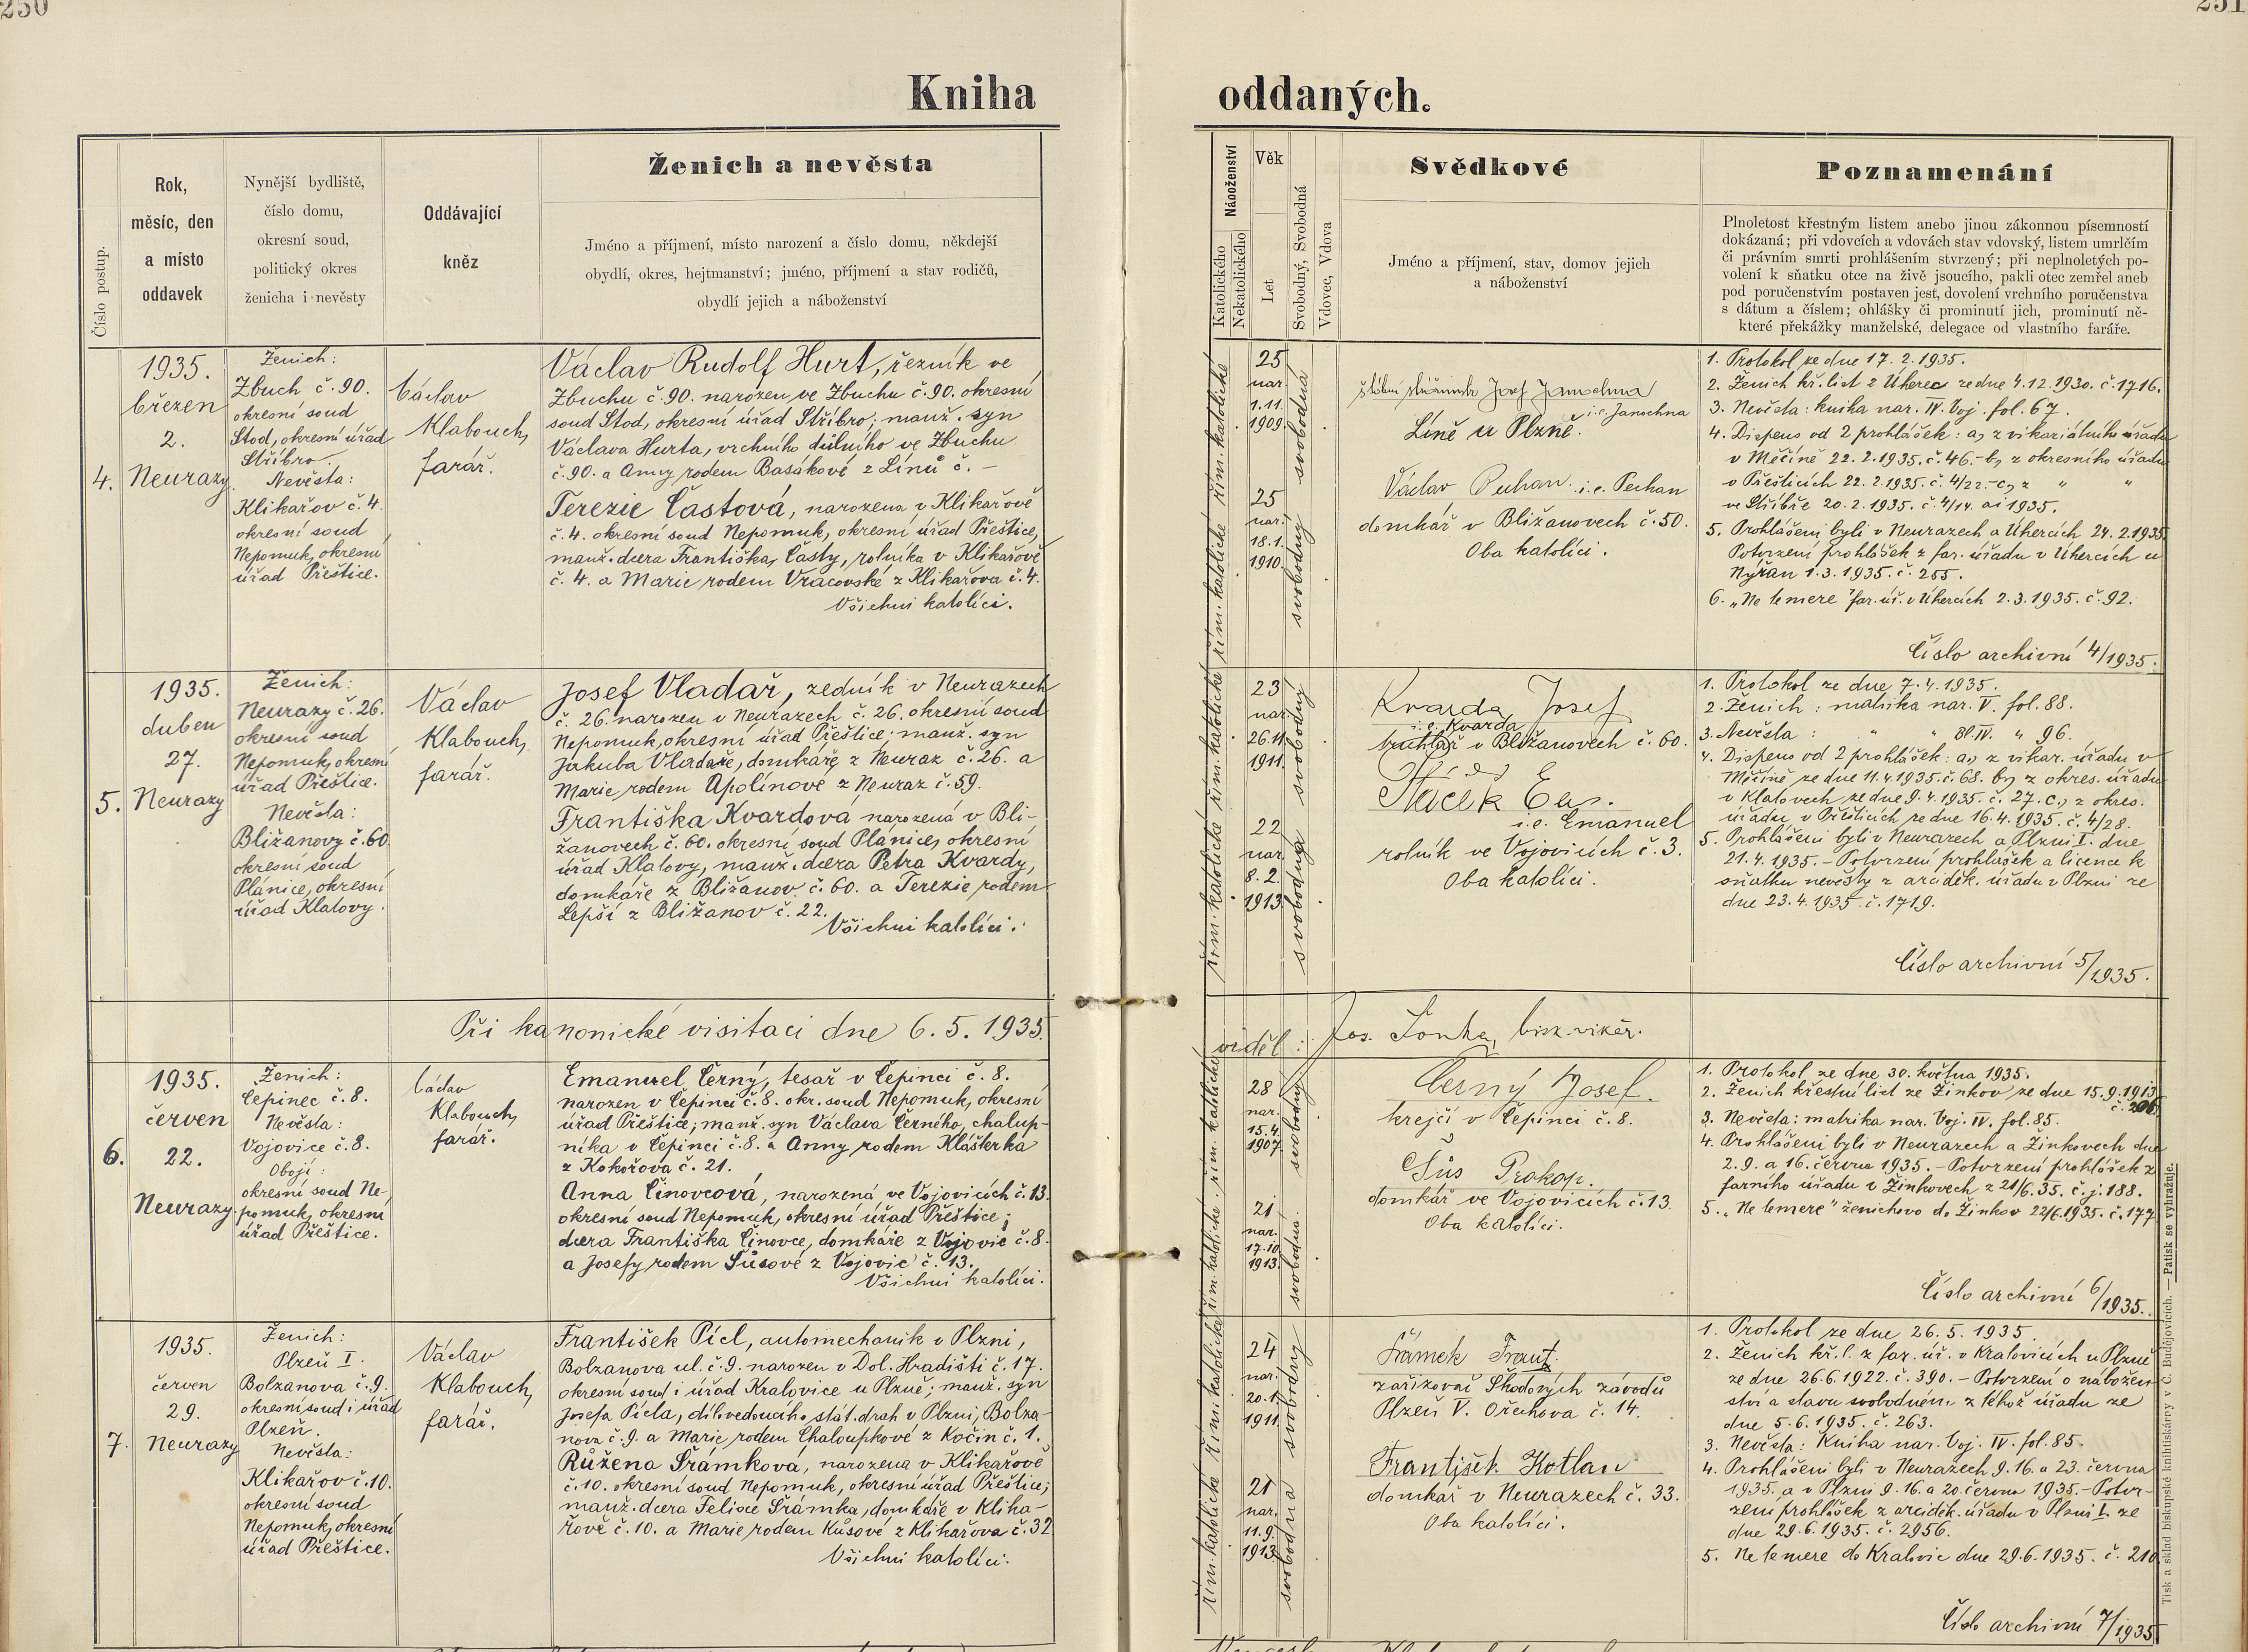 250
251
Kniha oddaných.
Číslo postup.
Rok,
měsíc, den
a místo
oddavek
Nynější bydliště,
číslo domu,
okresní soud,
politický okres
ženicha i nevěsty
Oddávající
kněz
Ženich a nevěsta
Jméno a příjmení, místo narození a číslo domu, někdejší
obydlí, okres, hejtmanství; jméno, příjmení a stav rodičů,
obydlí jejich a náboženství
Náboženství
Katolického
Nekatolického
Věk
Let
Svobodný, Svobodná
Vdovec, Vdova
Svědkové
Jméno a příjmení, stav, domov jejich
a náboženství
Poznamenání
Plnoletost křestným listem anebo jinou zákonnou písemností
dokázaná; při vdovcích a vdovách stav vdovský, listem umrlčím
či právním smrti prohlášením stvrzený; při neplnoletých po-
volení k sňatku otce na živě jsoucího, pakli otec zemřel aneb
pod poručenstvím postaven jest, dovolení vrchního poručenstva
s dátum a číslem; ohlášky či prominutí jich, prominutí ně-
které překážky manželské, delegace od vlastního faráře.
4.
1935.
březen
2.
Neurazy
Ženich:
Zbuch č. 90.
okresní soud
Stod, okresní úřad
Stříbro.
Nevěsta:
Klikařov č. 4.
okresní soud
Nepomuk, okresní
úřad Přeštice.
Václav
Klabouch,
farář.
Václav Rudolf Hurt, řezník ve
Zbuchu č. 90. narozen ve Zbuchu č. 90. okresní
soud Stod, okresní úřad Stříbro; manž. syn
Václava Hurta, vrchního důlního ve Zbuchu
č. 90. a Anny rodem Basákové z Línů č. –
Terezie Častová, narozena v Klikařově
č. 4. okresní soud Nepomuk, okresní úřad Přeštice,
manž. dcera Františka Časty, rolníka v Klikařově
č. 4. a Marie rodem Vracovské z Klikařova č. 4.
Všichni katolíci.
řím. katolické řím. katolické
25
nar.
1.11.
1909.
svobodná
25
nar.
18.1.
1910.
svobodný
Josef Janochna
i.e. Janochna
Líně u Plzně.
Václav Pechan i.e. Pechan
domkář v Bližanovech č. 50.
Oba katolíci.
1. Protokol ze dne 17. 2. 1935.
2. Ženich kř. list z Úherec ze dne 4.12.1930. č. 1716.
3. Nevěsta: kniha nar. IV. Voj. fol. 67.
4. Dispens od 2 prohlášek: a, z vikariátního úřadu
v Měčíně 22. 2. 1935. č. 46. – b, z okresního úřadu
v Přešticích 22. 2. 1935. č. 4/22. – c, z " "
ve Stříbře 20. 2. 1935. č. 4/14. ai 1935.
5. Prohlášeni byli v Neurazech a Úhercích 24. 2. 1935
Potvrzení prohlášek z far. úřadu v Úhercích u
Nýřan 1. 3. 1935. č. 255.
6. „Ne temere" far. úř. v Úhercích 2. 3. 1935. č. 92.
Číslo archivní 4/1935.
5.
1935.
duben
27.
Neurazy
Ženich:
Neurazy č. 26.
okresní soud
Nepomuk, okresní
úřad Přeštice.
Nevěsta:
Bližanovy č. 60.
okresní soud
Plánice, okresní
úřad Klatovy.
Václav
Klabouch,
farář.
Josef Vladař, zedník v Neurazech
č. 26. narozen v Neurazech č. 26. okresní soud
Nepomuk, okresní úřad Přeštice; manž. syn
Jakuba Vladaře, domkáře z Neuraz č. 26. a
Marie rodem Apolínové z Neuraz č. 59.
Františka Kvardová narozená v Bli-
žanovech č. 60. okresní soud Plánice, okresní
úřad Klatovy, manž. dcera Petra Kvardy,
domkáře z Bližanov č. 60. a Terezie rodem
Lepší z Bližanov č. 22.
Všichni katolíci.
řím. katolické řím. katolické
23
nar.
26.11.
1911.
svobodný
22
nar.
8. 2.
1913.
svobodná
Kvarda Josef
i.e. Kvarda
truhlář v Bližanovech č. 60.
i.e. Emanuel
rolník ve Vojovicích č. 3.
Oba katolíci.
1. Protokol ze dne 7. 4. 1935.
2. Ženich: matrika nar. V. fol. 88.
3. Nevěsta: " " Bl. IV. " 96.
4. Dispens od 2 prohlášek: a, z vikar. úřadu v
Měčíně ze dne 11.4.1935. č. 68. b, z okres. úřadu
v Klatovech ze dne 9. 4. 1935. č. 27. c, z okres.
úřadu v Přešticích ze dne 16. 4. 1935. č. 4/28.
5. Prohlášeni byli v Neurazech a Plzni I. dne
21. 4. 1935. – Potvrzení prohlášek a licence k
sňatku nevěsty z arciděk. úřadu v Plzni ze
dne 23. 4. 1935. č. 1719.
Číslo archivní 5/1935.
Při kanonické visitaci dne 6. 5. 1935.
viděl: Jos. Šonka, bisk. vikář.
6.
1935.
červen
22.
Neurazy
Ženich:
Čepinec č. 8.
Nevěsta:
Vojovice č. 8.
Obojí:
okresní soud Ne-
pomuk, okresní
úřad Přeštice.
Václav
Klabouch,
farář.
Emanuel Černý, tesař v Čepinci č. 8.
narozen v Čepinci č. 8. okr. soud Nepomuk, okresní
úřad Přeštice; manž. syn Václava Černého, chalup-
níka v Čepinci č. 8. a Anny rodem Klášterka
z Kokořova č. 21.
Anna Činovcová, narozená ve Vojovicích č. 13.
okresní soud Nepomuk, okresní úřad Přeštice;
dcera Františka Činovce, domkáře z Vojovic č. 8.
a Josefy rodem Šůsové z Vojovic č. 13.
Všichni katolíci.
řím. katolické řím. katolické
28
nar.
15.4.
1907.
svobodný
21
nar.
17.10.
1913.
svobodná
Černý Josef.
krejčí v Čepinci č. 8.
Šůs Prokop.
domkář ve Vojovicích č. 13.
Oba katolíci.
1. Protokol ze dne 30. května 1935.
2. Ženich křestní list ze Žinkov ze dne 15.9.1913
č. 206
3. Nevěsta: matrika nar. Voj. IV. fol. 85.
4. Prohlášeni byli v Neurazech a Žinkovech dne
2. 9. a 16. června 1935. – Potvrzení prohlášek z
farního úřadu v Žinkovech z 21/6. 35. č. j. 188.
5. „Ne temere" ženichovo do Žinkov 22/6.1935. č. 177
Číslo archivní 6/1935.
7.
1935.
červen
29.
Neurazy
Ženich:
Plzeň I.
Bolzanova č. 9.
okresní soud i úřad
Plzeň.
Nevěsta:
Klikařov č. 10.
okresní soud
Nepomuk, okresní
úřad Přeštice.
Václav
Klabouch,
farář.
František Pícl, automechanik v Plzni,
Bolzanova ul. č. 9. narozen v Dol. Hradišti č. 17.
okresní soud i úřad Kralovice u Plzně; manž. syn
Josefa Pícla, dílovedoucího stát. drah v Plzni, Bolza-
nova č. 9. a Marie rodem Chaloupkové z Kočin č. 1.
Růžena Šrámková, narozena v Klikařově
č. 10. okresní soud Nepomuk, okresní úřad Přeštice;
manž. dcera Felixe Šrámka, domkáře v Klika-
řově č. 10. a Marie rodem Kůsové z Klikařova č. 32
Všichni katolíci.
řím. katolické řím. katolické
24
nar.
20.1.
1911.
svobodný
21
nar.
11.9.
1913
svobodná
Šrámek Frant.
zařizovač Škodových závodů
Plzeň V. Ořechova č. 14.
František Kotlan
domkář v Neurazech č. 33.
Oba katolíci.
1. Protokol ze dne 26. 5. 1935.
2. Ženich kř. l. z far. úř. v Kralovicích u Plzně
ze dne 26. 6. 1922. č. 390. – Potvrzení o nábožen
ství a stavu svobodném z téhož úřadu ze
dne 5. 6. 1935. č. 263.
3. Nevěsta: Kniha nar. Voj. IV. fol. 85.
4. Prohlášeni byli v Neurazech 9. 16. a 23. června
1935. a v Plzni 9. 16. a 20. června 1935. – Potvr-
zení prohlášek z arciděk. úřadu v Plzni I. ze
dne 29. 6. 1935. č. 2956.
5. Ne temere do Kralovic dne 29. 6. 1935. č. 210
Číslo archivní 7/1935
Tisk a sklad biskupské knihtiskárny v Č. Budějovicích. — Patisk se vyhražuje.